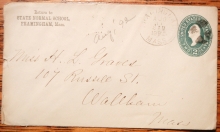 Return to
STATE NORMAL SCHOOL,
FRAMINGHAM, Mass.
Miss H. L. Graves
107 Russell St.
Waltham
Mass.